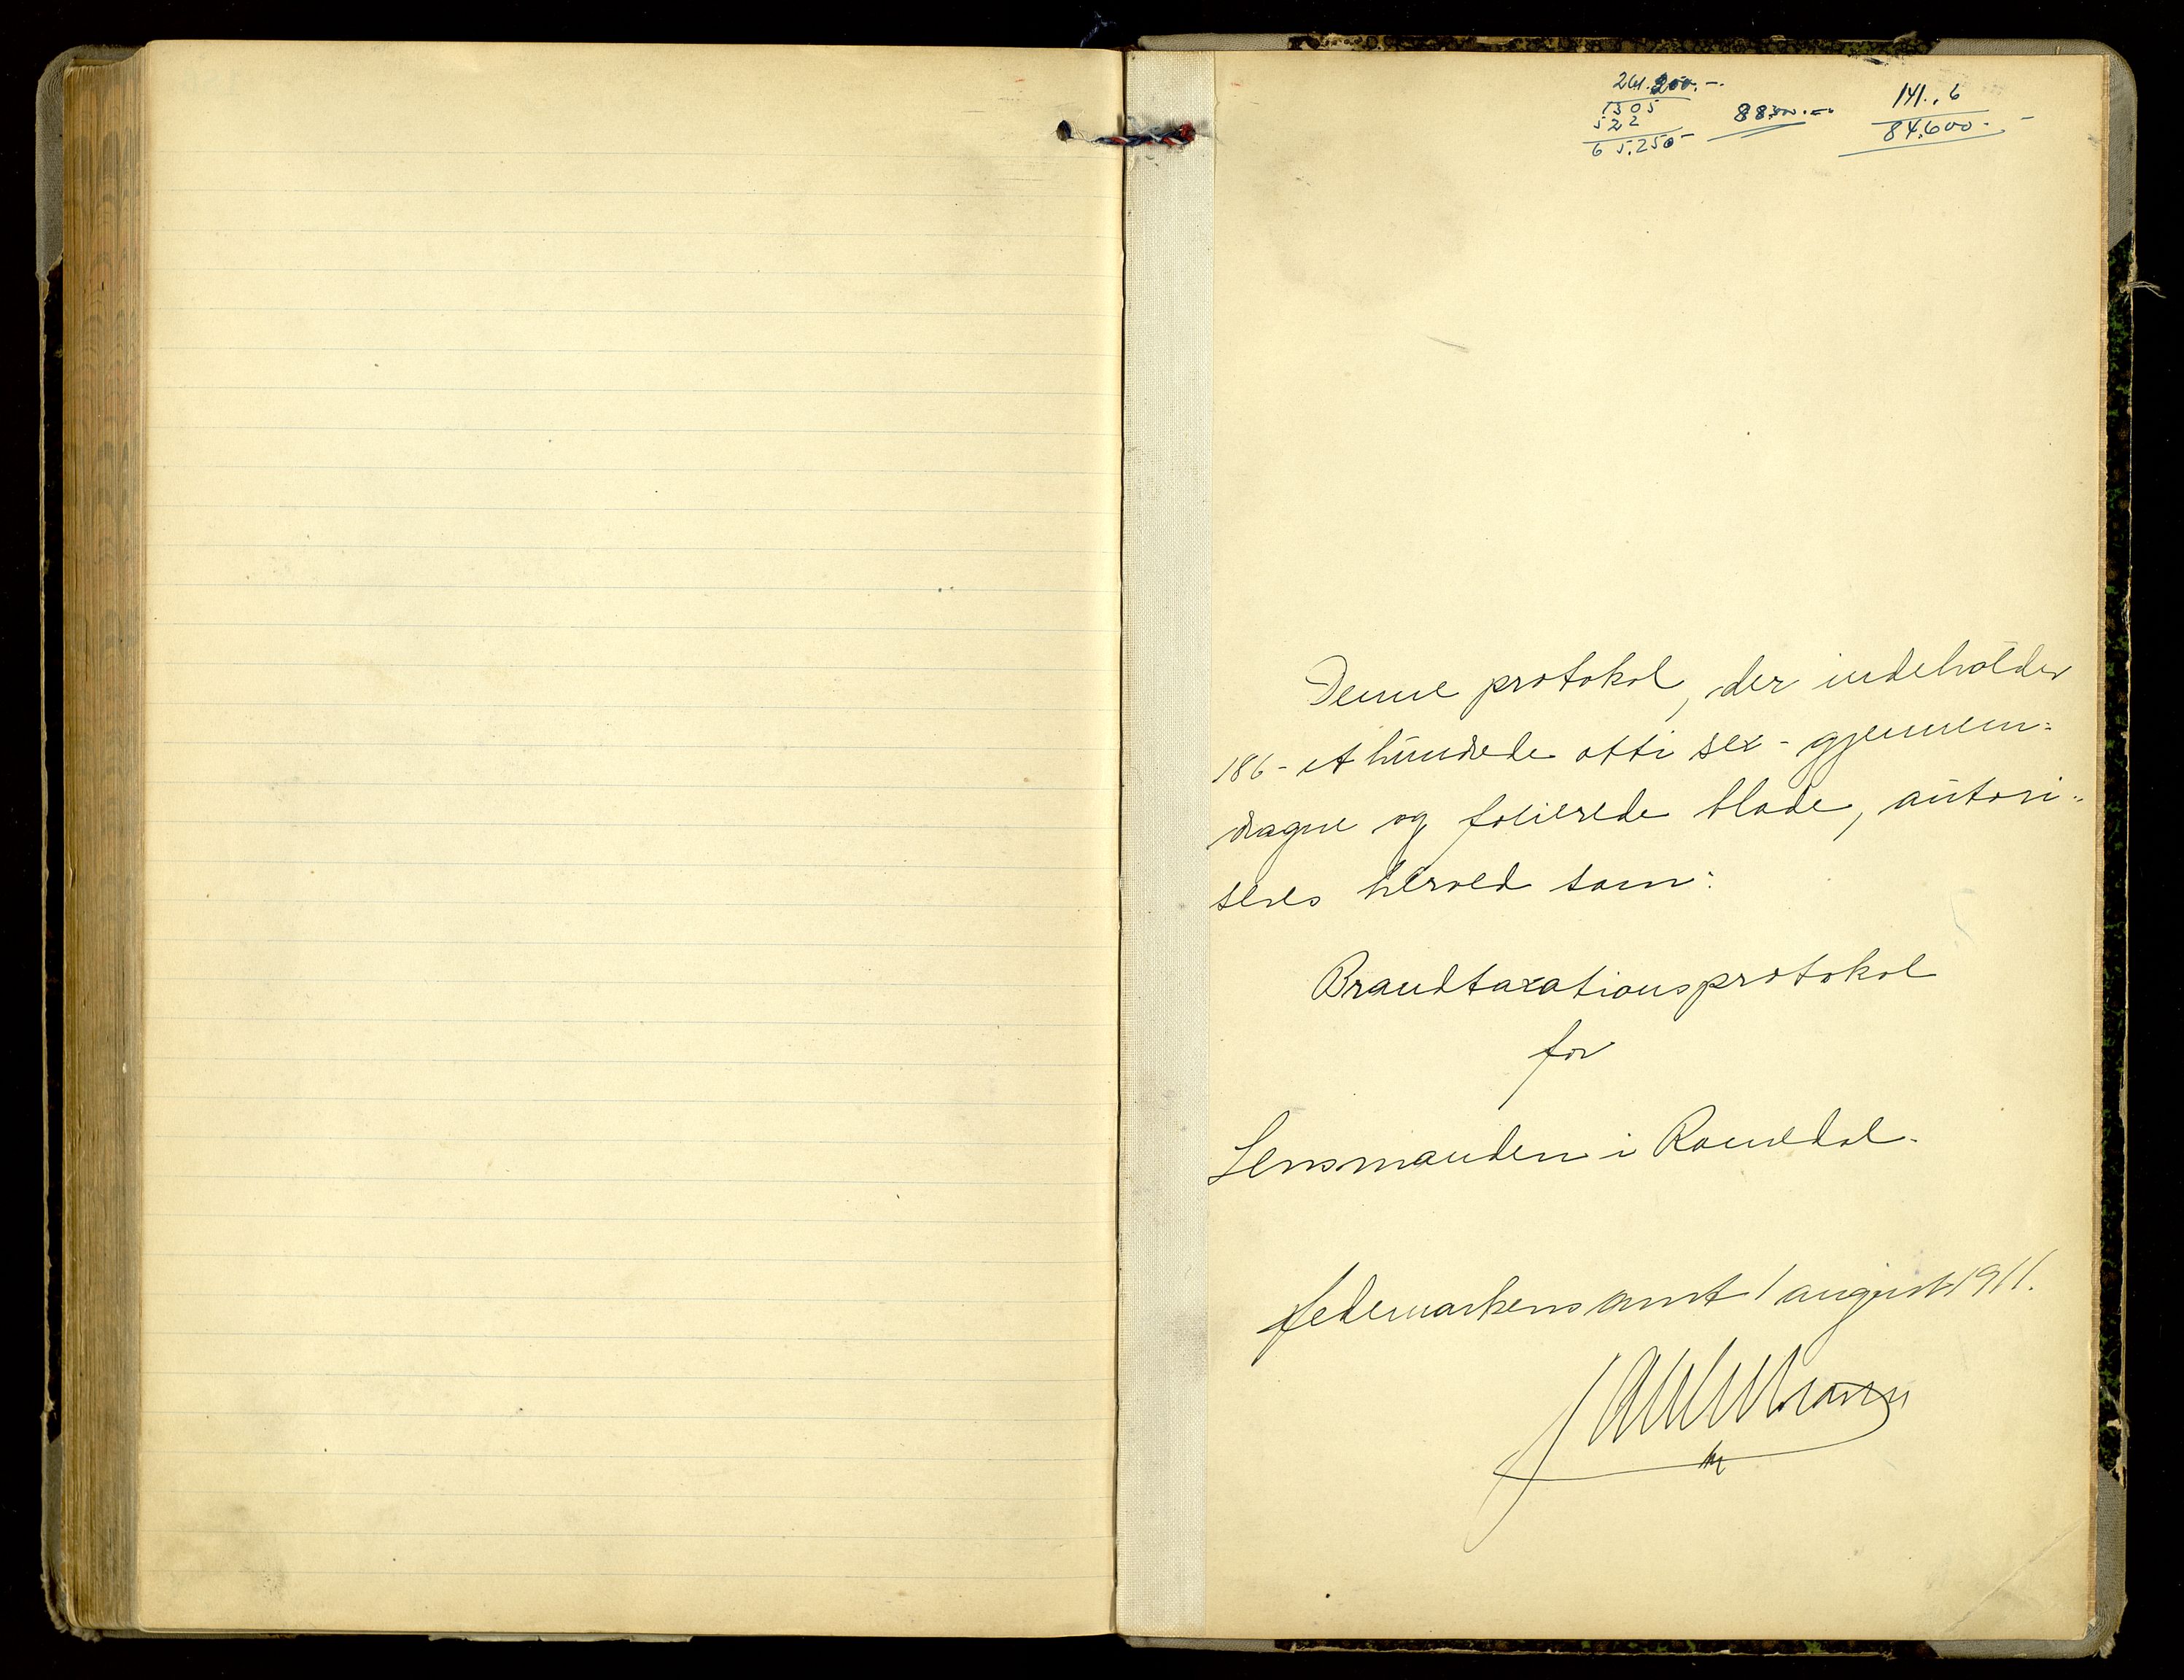 261.200.-
1305
522
65.250-
8800.-
141.,6
84.600.-
Denne protokol, der indeholder
186 - et hundrede otti sex - gjennem-
dragne og folierede blade, autori-
seres herved som:
Brandtaxationsprotokol
for
Lensmanden i Romedal.
Hedemarkens amt 1 august 1911.